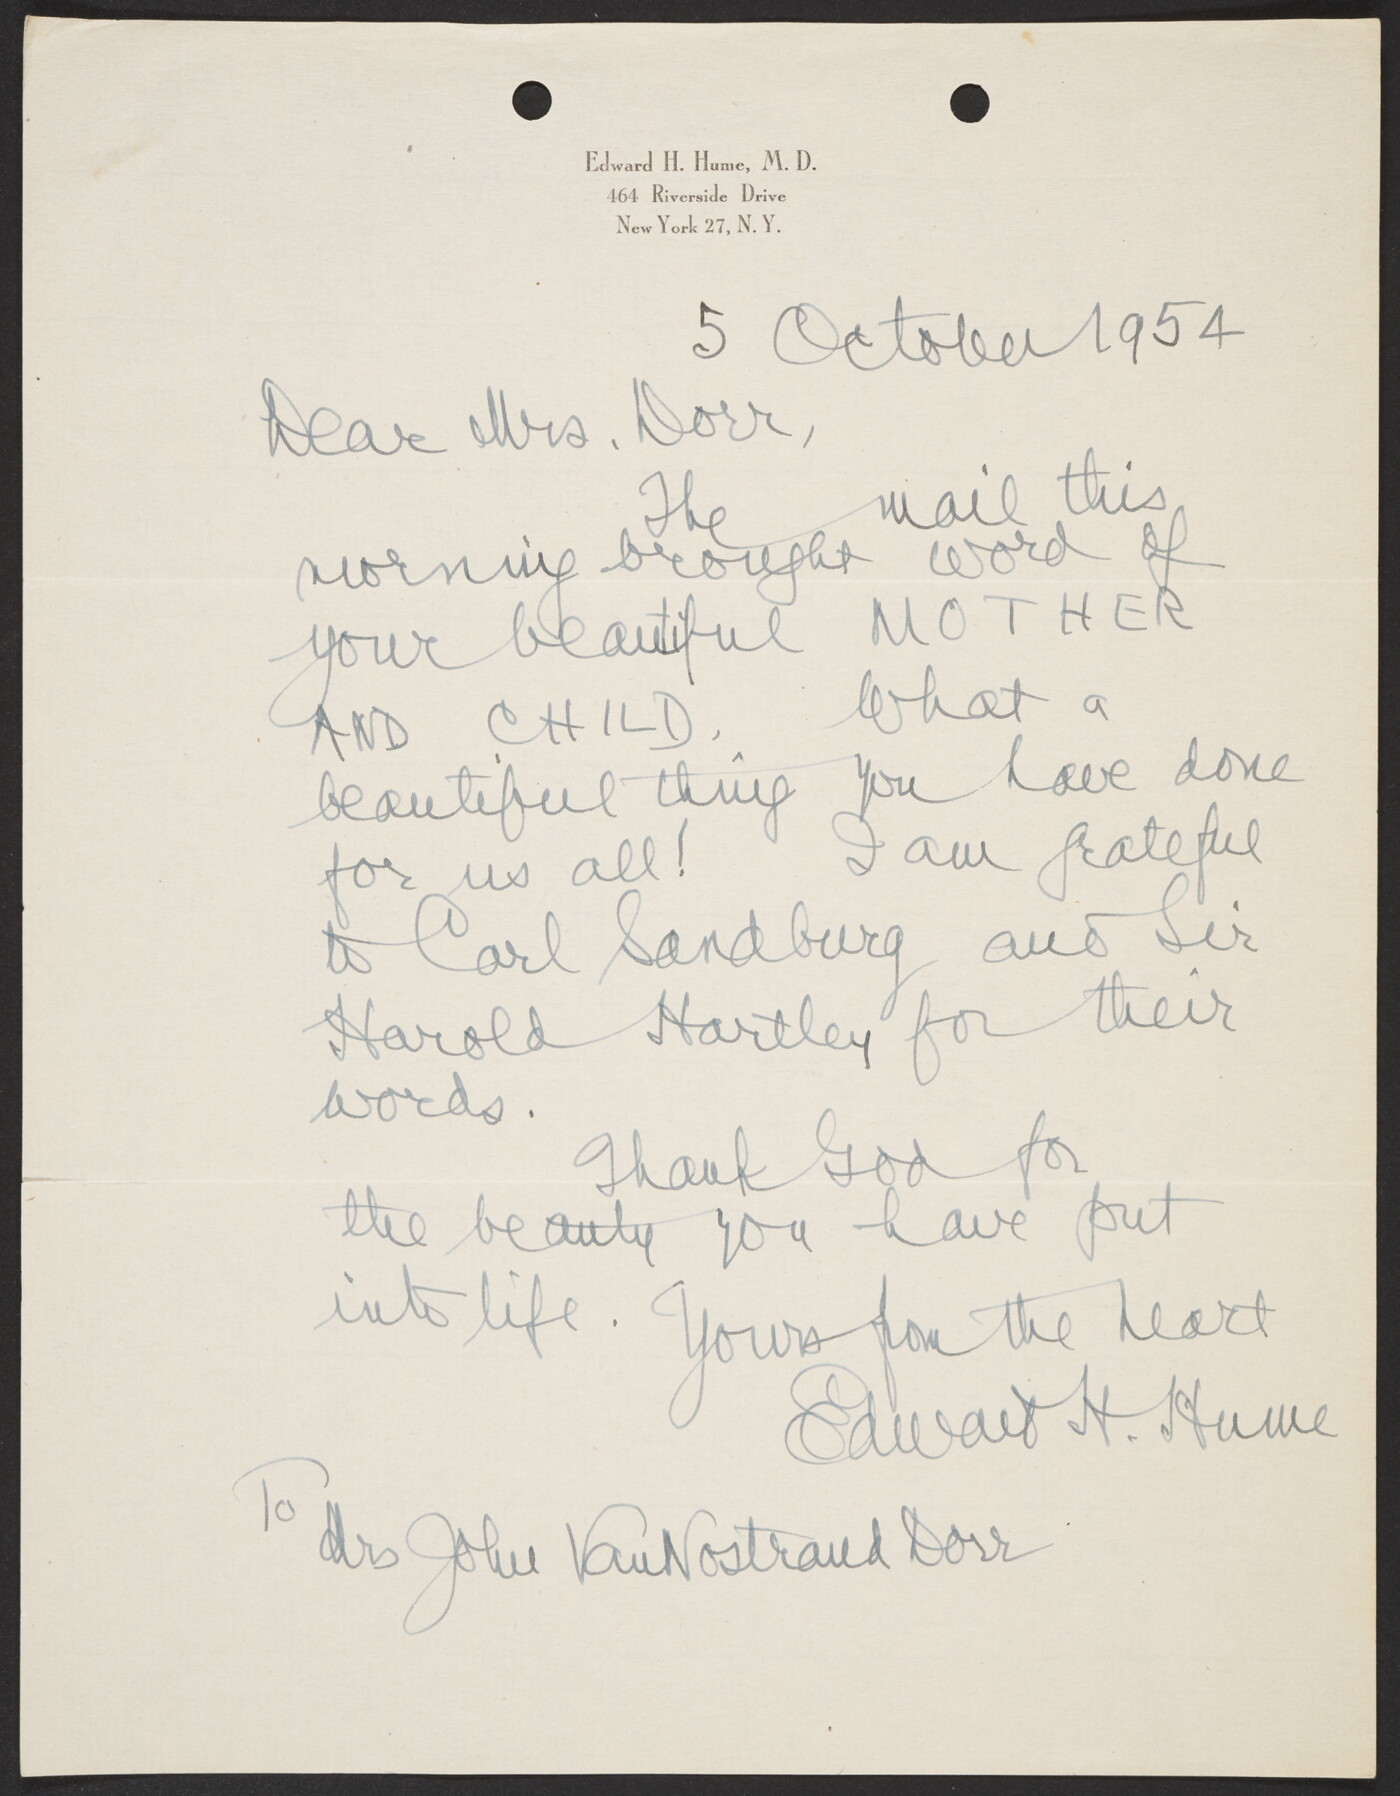 Edward H. Hume, M. D.
464 Riverside Drive
New York 27, N. Y.
5 October 1954
Dear Mrs. Dorr,
The mail this
morning brought word of
your beautiful MOTHER
AND CHILD. What a
beautiful thing you have done
for us all! I am grateful
to Carl Sandburg and Sir
Harold Hartley for their
words.
Thank God for
the beauty you have put
into life. Yours from the heart
Edward H. Hume
To
Mrs John VanNostrand Dorr